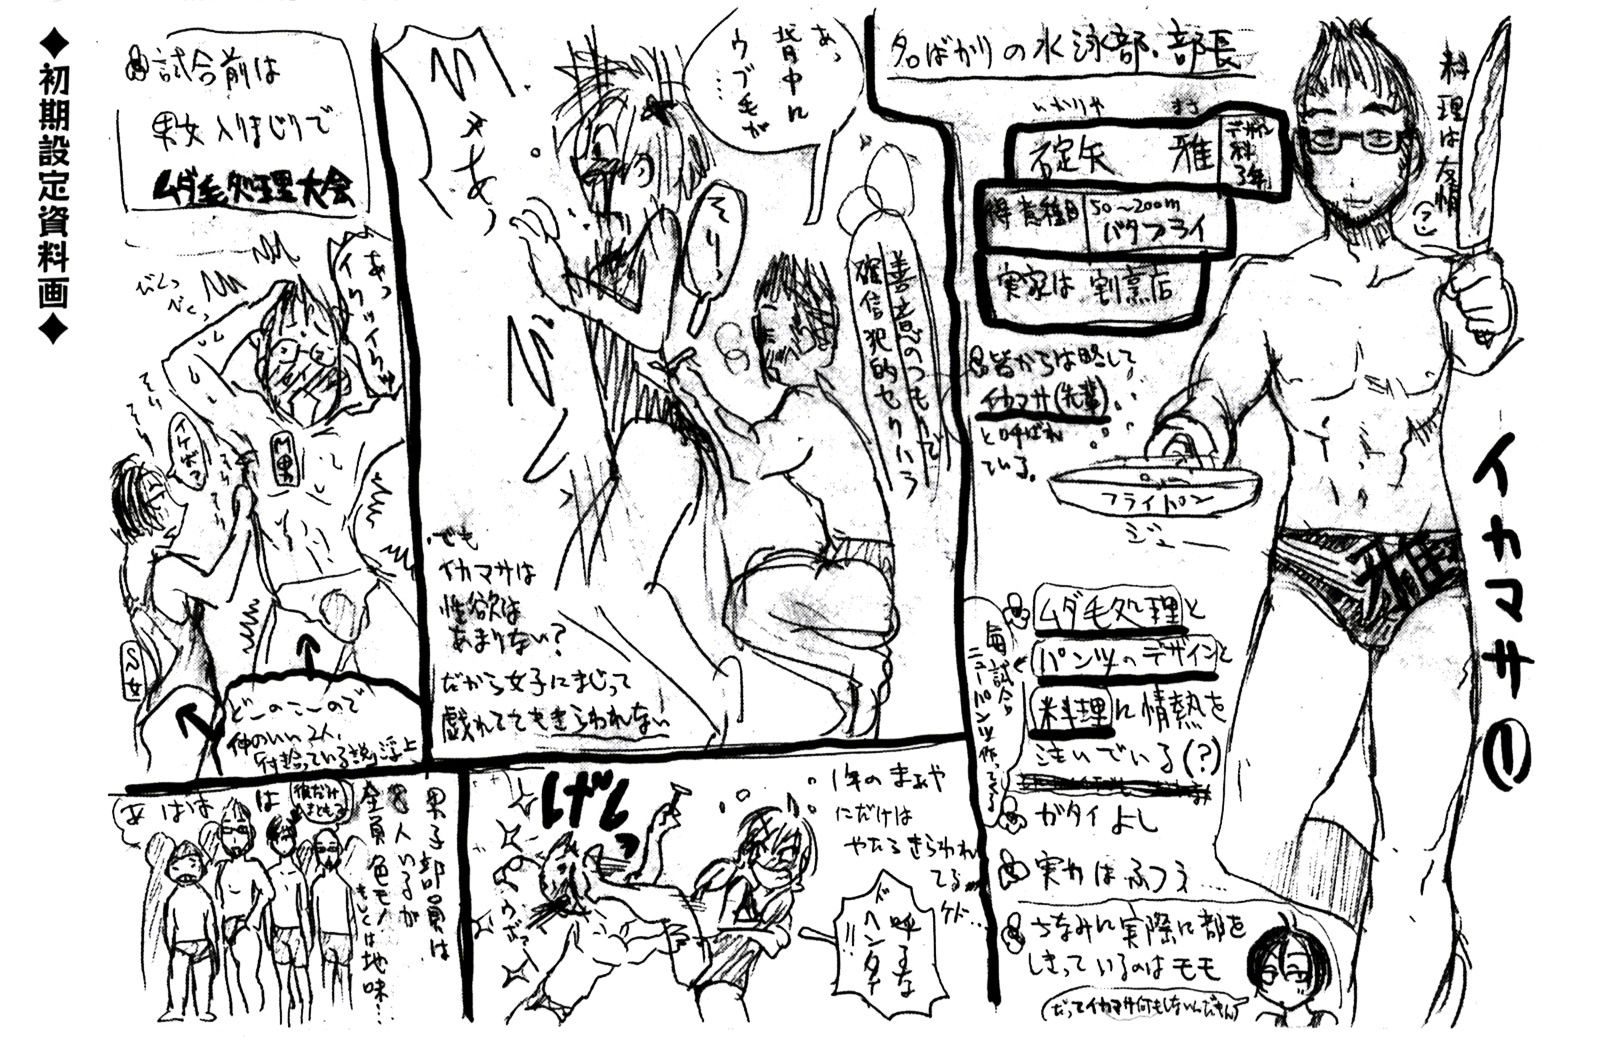 ◆初期設定資料画◆
イカマサ①
名ばかりの水泳部・部長
いかりや まさ
碇矢 雅
デザイン科3年
得意種目
50〜200m
バタフライ
実家は割烹店
料理は友情
皆からは略して
イカマサ(先輩)
と呼ばれ
ている。
フライパン
ジュー
雅
ムダ毛処理と
パンツのデザインと
料理に情熱を
注いでいる(?)
毎試合
ニューパンツ作ってくる
ガタイよし
実力はふつう…
ちなみに実際に部を
しきっているのはモモ
(だってイカマサ何もしないんだもん)
あっ
背中に
ウブ毛が…
そりっ
善意のつもりで
確信犯的セクハラ
いやあっ
でも
イカマサは
性欲は
あまりない?
だから女子にまじって
戯れててもきらわれない
試合前は
男女入りまじりで
ムダ毛処理大会
あっ
イクッイクッ
びくっ
びくっ
そり
そり
M男
S女
どーのこーので
仲のいい2人、
付き合っている説浮上
男子部員は
人いるが
全員色モノ
もしくは地味…
あははは
彼だけ
まとも
げしっ
1年の
にだけは
やたらきらわれ
てる
ケド…
呼るな
ドヘンタイ!!